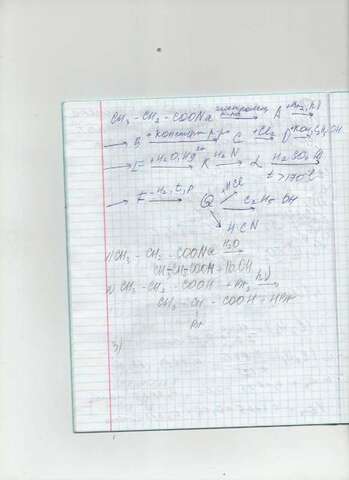 CH3 - CH2 - COONa электролиз р-ра → A +Br2, hν →
→ B + конспирт. р-р → C +Cl2 → D +KOH, C2H5OH
→ E +H2O, Hg2+ → K H2, Ni → L H2SO4 t >170°C
→ F +H2, t, p → Q → HCl
→ C2H5OH
→ HCN
1) CH3 - CH2 - COONa H2O →
CH3-CH2-COOH + NaOH
2) CH3 - CH2 - COOH + Br2 hν →
CH3 - CH - COOH + HBr
Br
3)